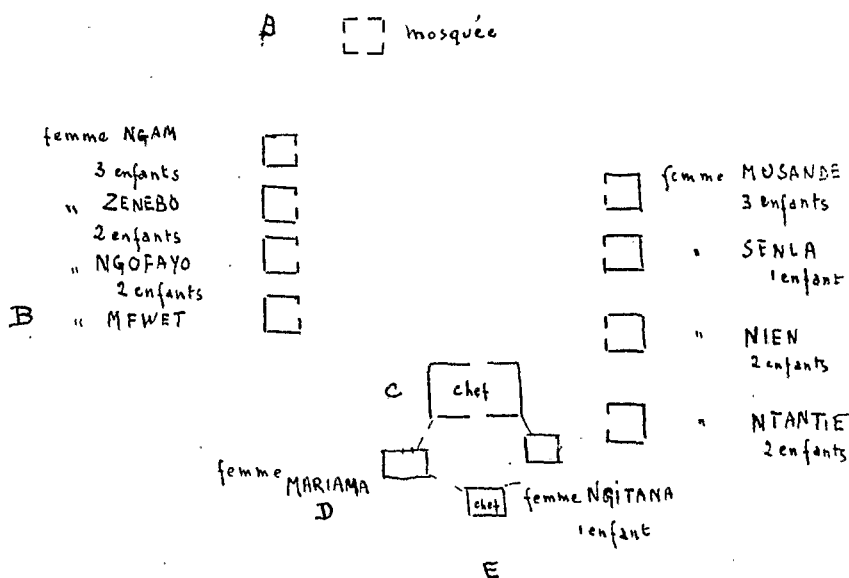 A mosquée
femme NGAM
3 enfants
" ZENEBO
2 enfants
" NGOFAYO
2 enfants
B " MFWET
femme MUSANDE
3 enfants
" SENLA
1 enfant
" NIEN
2 enfants
" NTANTIE
2 enfants
C chef
femme MARIAMA
D
chef femme NGITANA
1 enfant
E